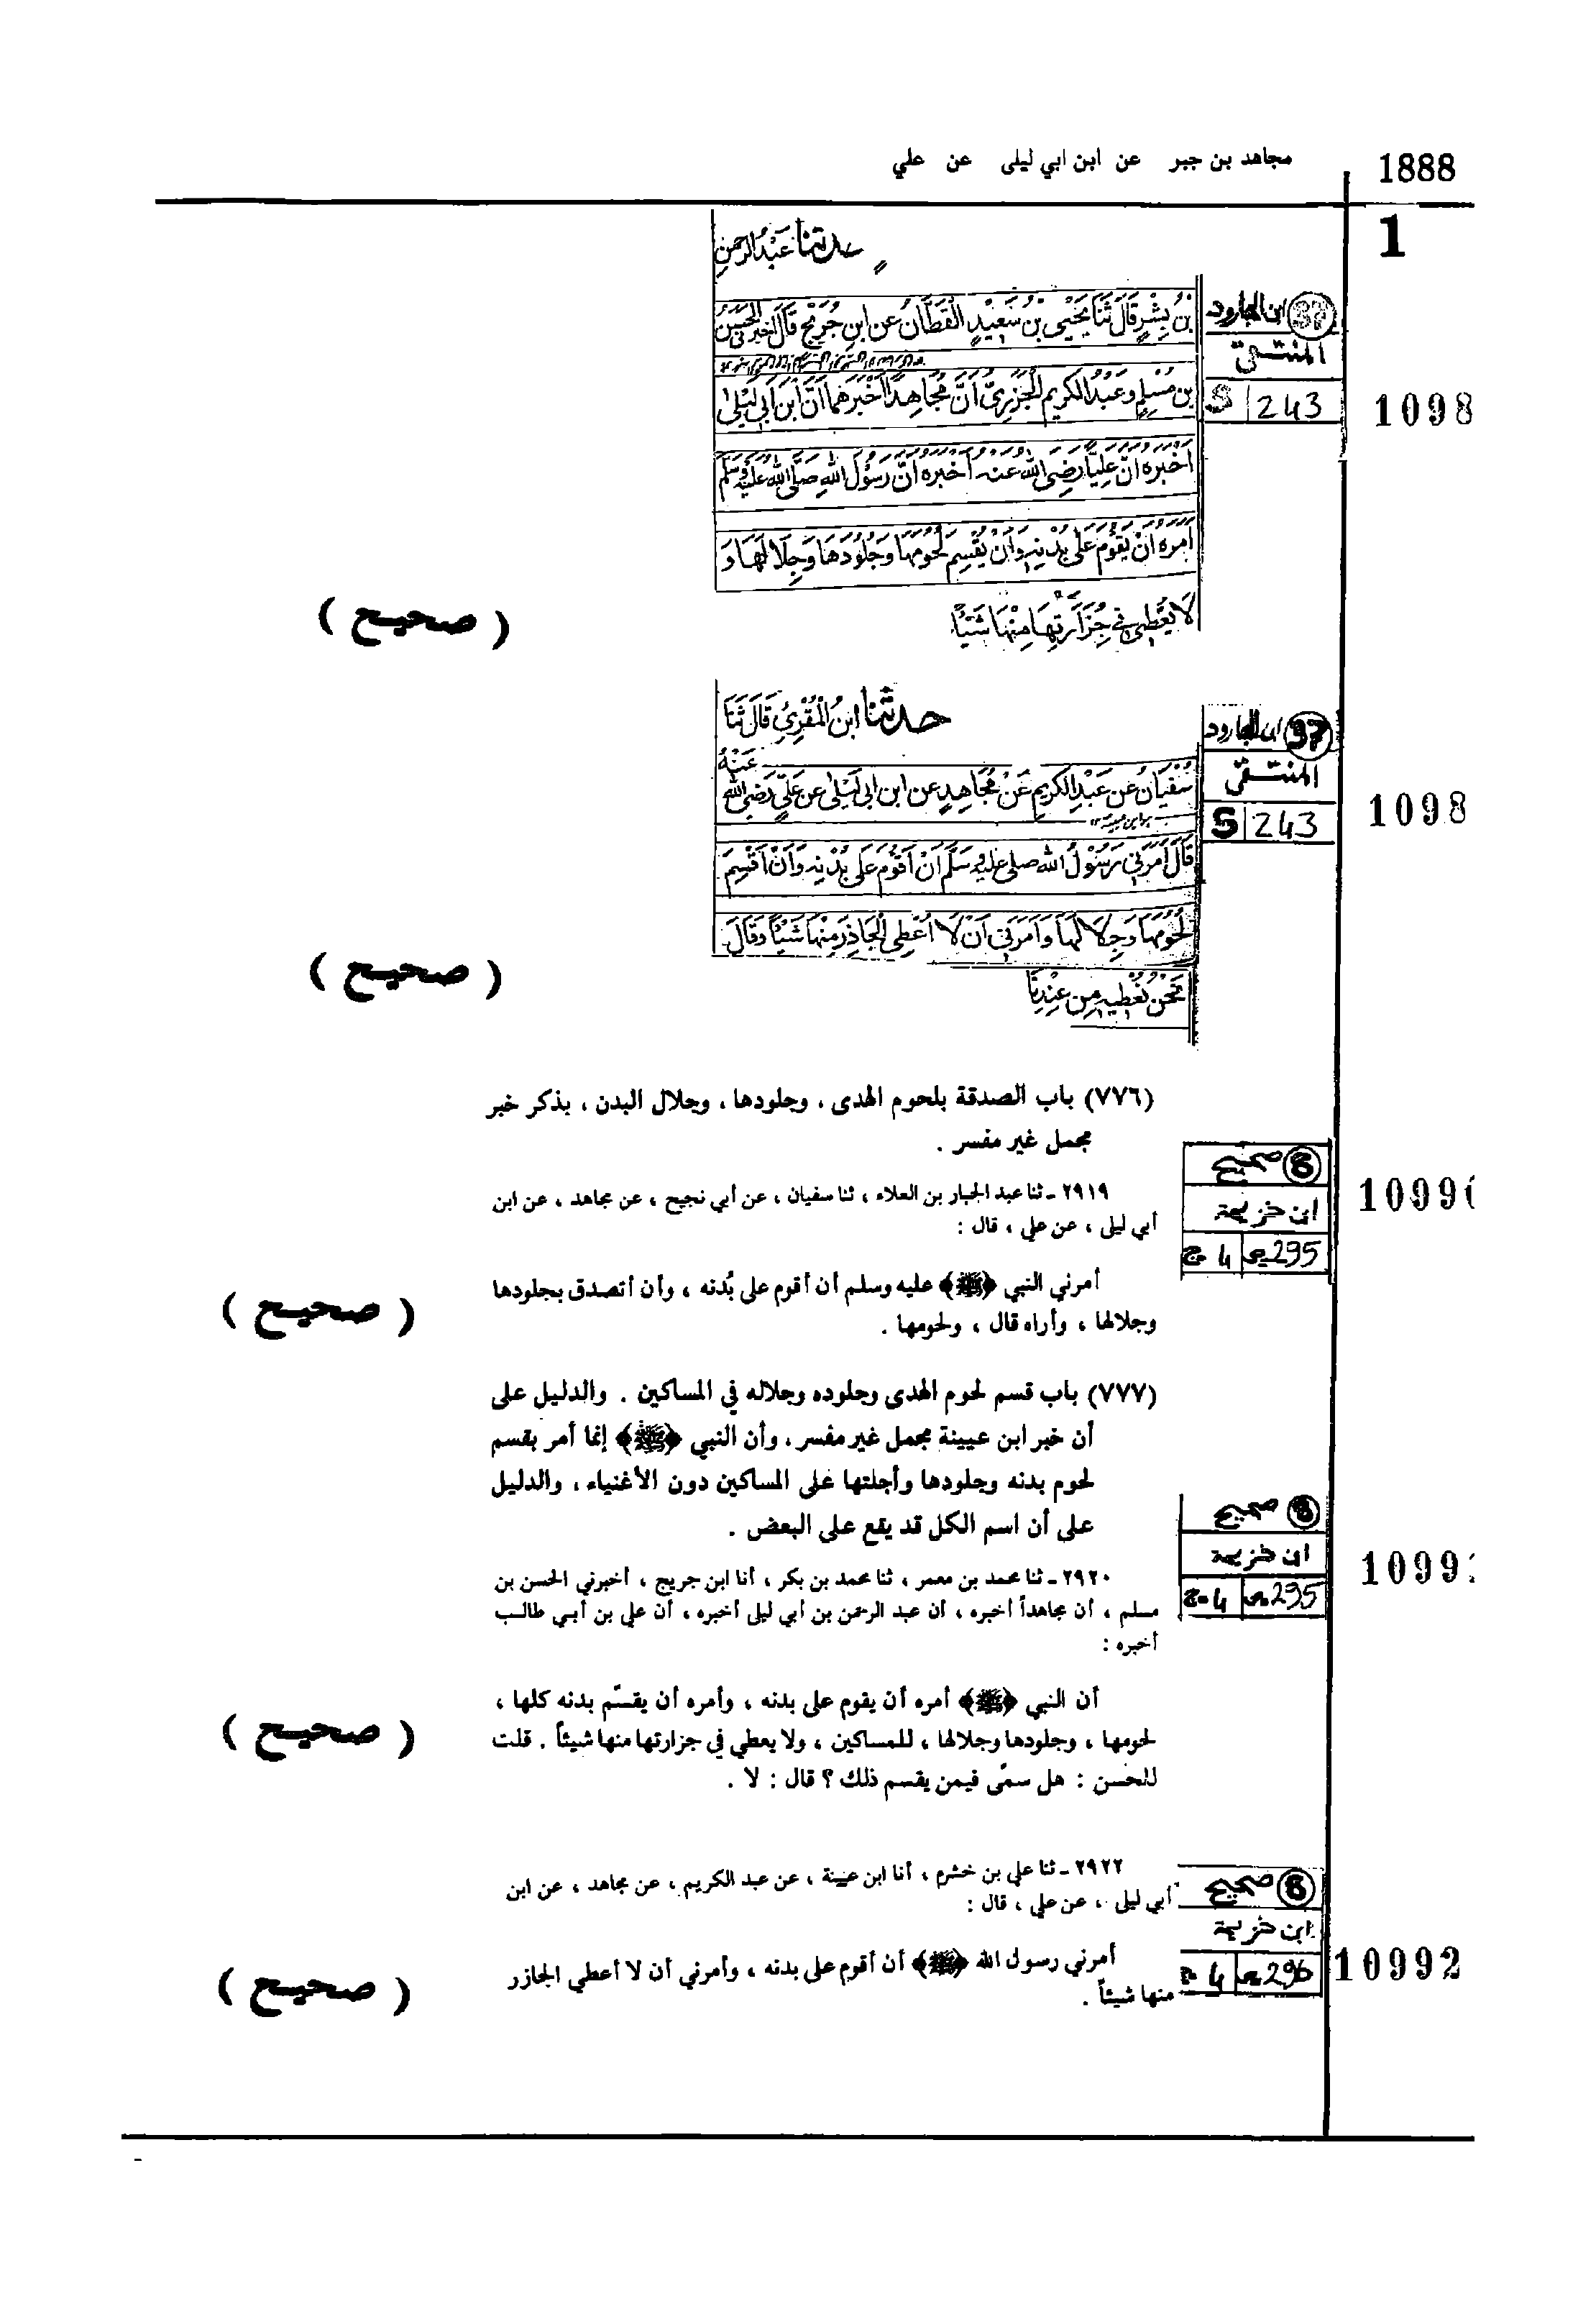 1888
مجاهد بن جبر عن ابن ابي ليلى عن علي
1
حدثنا عَبْدُ الرحمنِ
ابن الجارود 37
بْنُ بِشْرٍ قَالَ ثَنَا يَحْيَى بْنُ سَعِيْدٍ الْقَطَّانُ عَنِ ابنِ جُرَيْجٍ قَالَ اَخبرنى الْحَسَنُ
المنتقى
بنُ مُسْلِمٍ وَعَبْدُ الكريمِ الْجَزَرِيُّ اَنَّ مُجَاهِدًا اَخْبَرَهُمَا اَنَّ ابْنَ اَبِي لَيْلىٰ
S 243
1098
اَخْبَرَهُ اَنَّ عَلِيًّا رَضِىَ اللهُ عَنه اَخبَرَهُ اَنَّ رَسُوْلَ اللهِ صَلَّى اللهُ عَلَيْهِ وَسَلَّمَ
اَمَرَهُ اَنْ يَقُوْمَ عَلىٰ بُدْنِهِ وَاَنْ يَقْسِمَ لُحُوْمَهَا وَجُلُوْدَهَا وَجِلَالَهَا وَ
لَا يُعْطِىَ فِي جِزَارَتِهَا مِنْهَا شَيْئًا
( صحيح )
حدثنا ابنُ الْمُقْرِئِ قَالَ ثَنَا
ابن الجارود 37
سُفْيَانُ عَن عَبْدِ الكريمِ عَنْ مُجَاهِدٍ عَنِ ابن ابى لَيْلىٰ عَن عَلِيٍّ رَضِىَ الله
عَنْهُ
المنتقى
S 243
1098
قَالَ اَمَرَنِي رَسُوْلُ الله صلى عليه وَسَلَّمَ اَنْ اَقُوْمَ عَلىٰ بُدْنِهِ وَاَنْ اَقْسِمَ
لُحُوْمَهَا وَجِلَالَهَا وَاَمَرَنِي اَنْ لَا اُعْطِىَ الْجَاذِرَ مِنْهَا شَيْئًا وَقَالَ
نَحْنُ نُعْطِيهِ مِن عِنْدِنَا
( صحيح )
(٧٧٦) باب الصدقة بلحوم الهدى ، وجلودها ، وجلال البدن ، بذكر خبر
مجمل غير مفسر .
8 صحيح
ابن خزيمة
ج 4 ص 295
10990
٢٩١٩ ـ ثنا عبد الجبار بن العلاء ، ثنا سفيان ، عن أبي نجيح ، عن مجاهد ، عن ابن
أبي ليلى ، عن علي ، قال :
أمرني النبي ﴿ﷺ﴾ عليه وسلم أن أقوم على بُدنه ، وأن أتصدق بجلودها
وجلالها ، وأراه قال ، ولحومها .
( صحيح )
(٧٧٧) باب قسم لحوم الهدى وجلوده وجلاله في المساكين . والدليل على
أن خبر ابن عيينة مجمل غير مفسر ، وأن النبي ﴿ﷺ﴾ إنما أمر بقسم
لحوم بدنه وجلودها وأجلتها على المساكين دون الأغنياء ، والدليل
على أن اسم الكل قد يقع على البعض .
8 صحيح
ابن خزيمة
ج 4 ص 295
1099
٢٩٢٠ ـ ثنا محمد بن معمر ، ثنا محمد بن بكر ، أنا ابن جريج ، أخبرني الحسن بن
مسلم ، أن مجاهداً أخبره ، أن عبد الرحمن بن أبي ليلى أخبره ، أن علي بن أبي طالب
أخبره :
أن النبي ﴿ﷺ﴾ أمره أن يقوم على بدنه ، وأمره أن يقسّم بدنه كلها ،
لحومها ، وجلودها وجلالها ، للمساكين ، ولا يعطي في جزارتها منها شيئاً . قلت
للحسن : هل سمّى فيمن يقسم ذلك ؟ قال : لا .
( صحيح )
8 صحيح
ابن خزيمة
ج 4 ص 296
10992
٢٩٢٢ ـ ثنا علي بن خشرم ، أنا ابن عيينة ، عن عبد الكريم ، عن مجاهد ، عن ابن
أبي ليلى ، عن علي ، قال :
أمرني رسول الله ﴿ﷺ﴾ أن أقوم على بدنه ، وأمرني أن لا أعطي الجازر
منها شيئاً .
( صحيح )